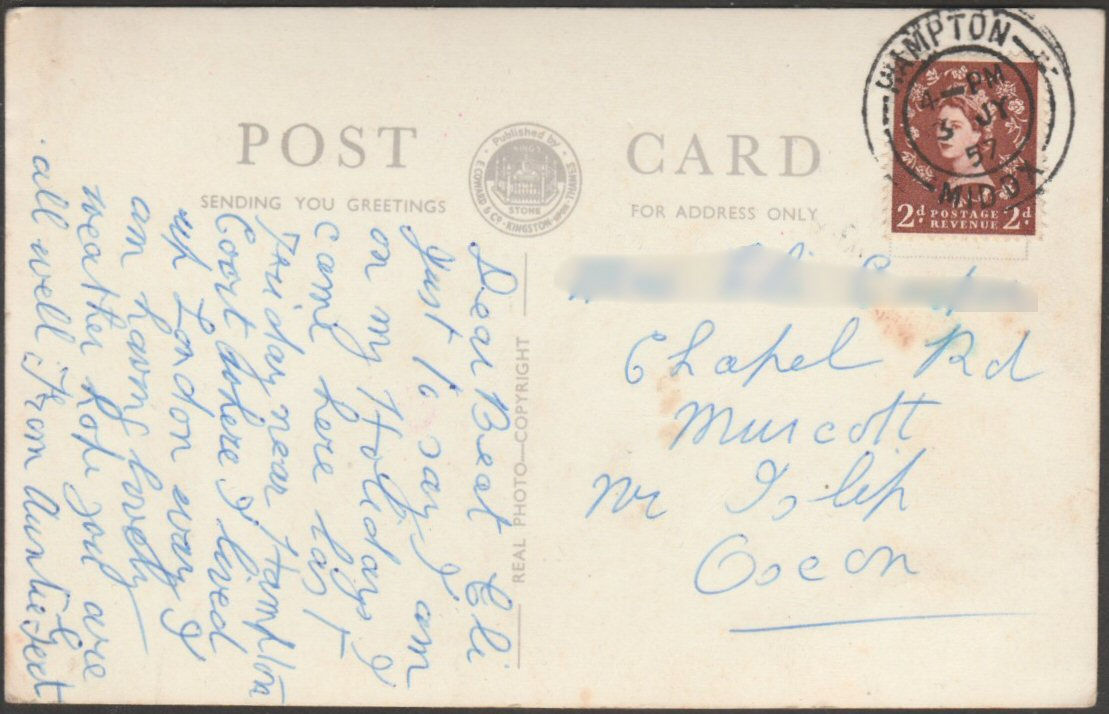 POST CARD
SENDING YOU GREETINGS
FOR ADDRESS ONLY
Published by
EDWARD & Co. KINGSTON-UPON-THAMES
KING'S
STONE
REAL PHOTO—COPYRIGHT
HAMPTON
4—PM
5 JY
57
MIDDX
2d POSTAGE 2d
REVENUE
Dear Beat Eli
Just to say I am
on my Holidays I
came here last
Friday near Hampton
Court where I lived
up London way I
am having lovely
weather hope you are
all well From Auntie Gert
Chapel Rd
Murcott
Nr Islip
Oxon